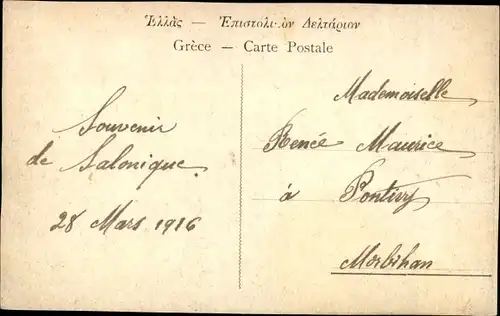 Ἑλλὰς — Ἐπιστολικὸν Δελτάριον
Grèce — Carte Postale
Souvenir
de Salonique.
28 Mars 1916
Mademoiselle
Renée Maurice
à Pontivy
Morbihan